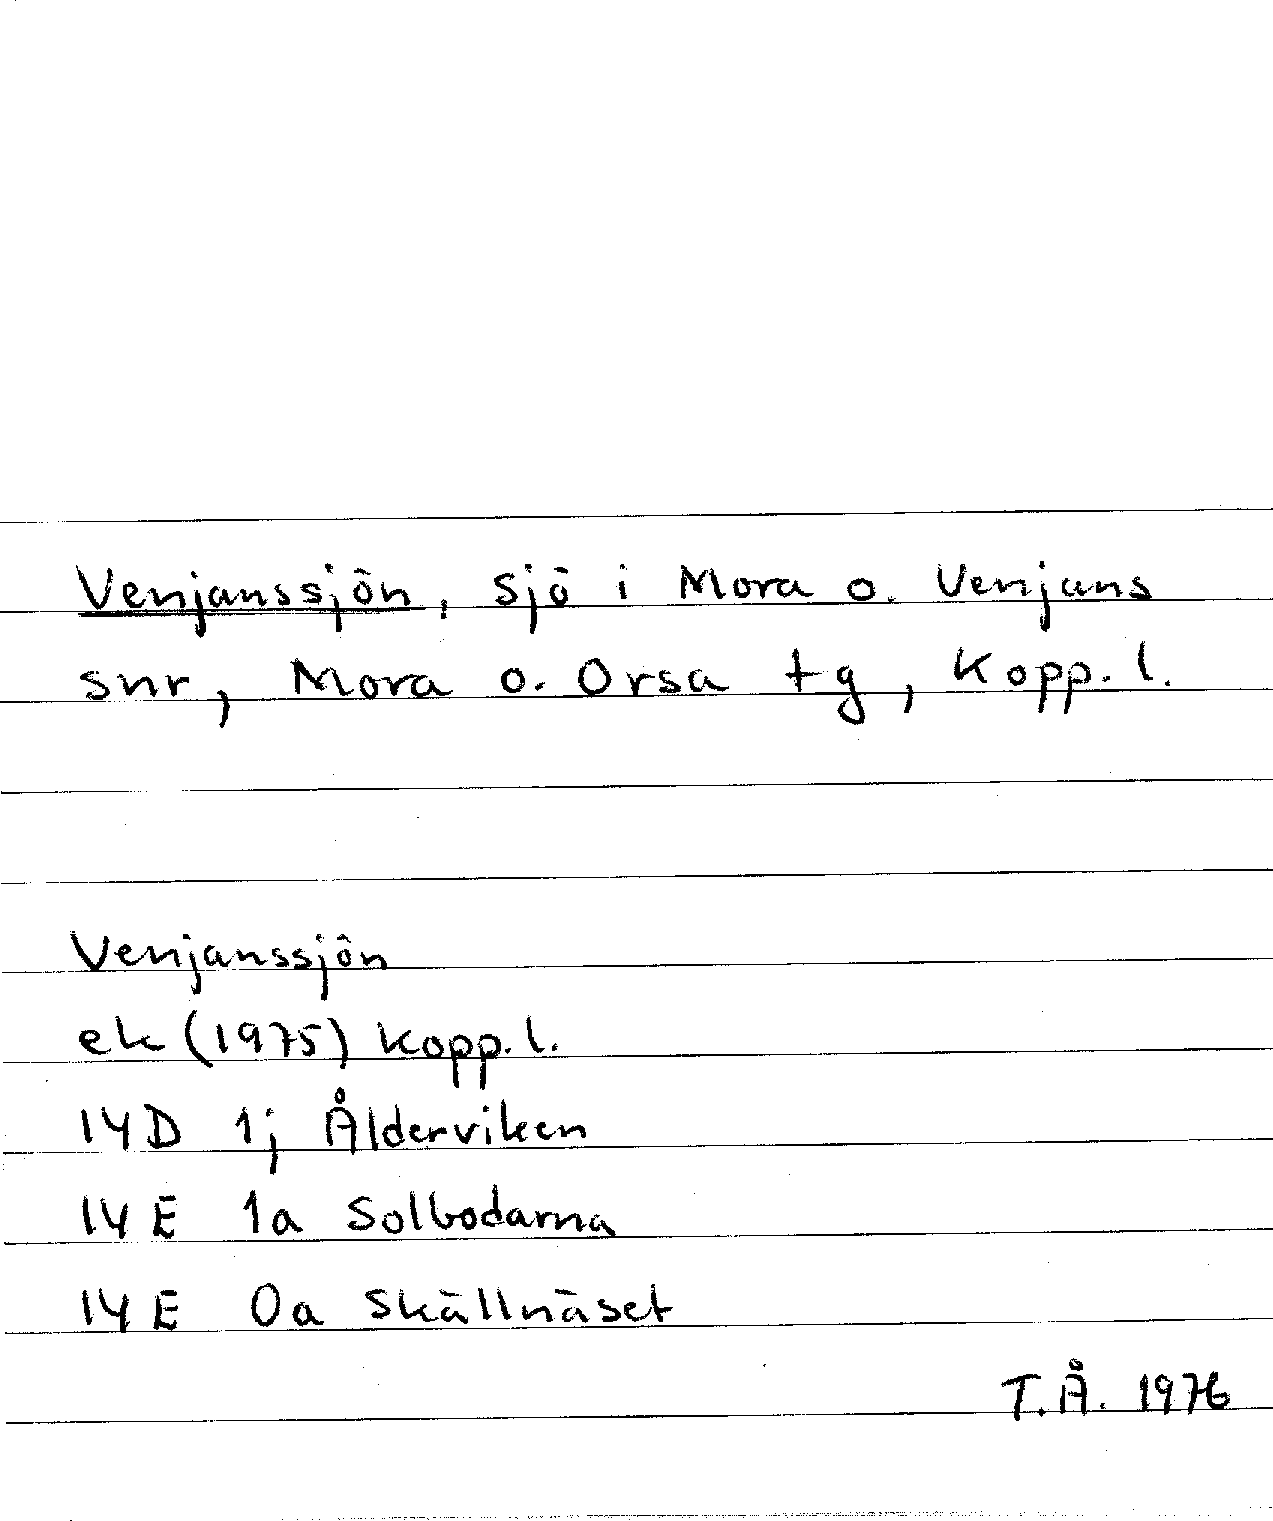 Venjanssjön, sjö i Mora o. Venjans
snr, Mora o. Orsa tg, Kopp. l.
Venjanssjön
ek (1975) Kopp. l.
14D 1j Ålderviken
14E 1a Solbodarna
14E 0a Skällnäset
T.Å. 1976